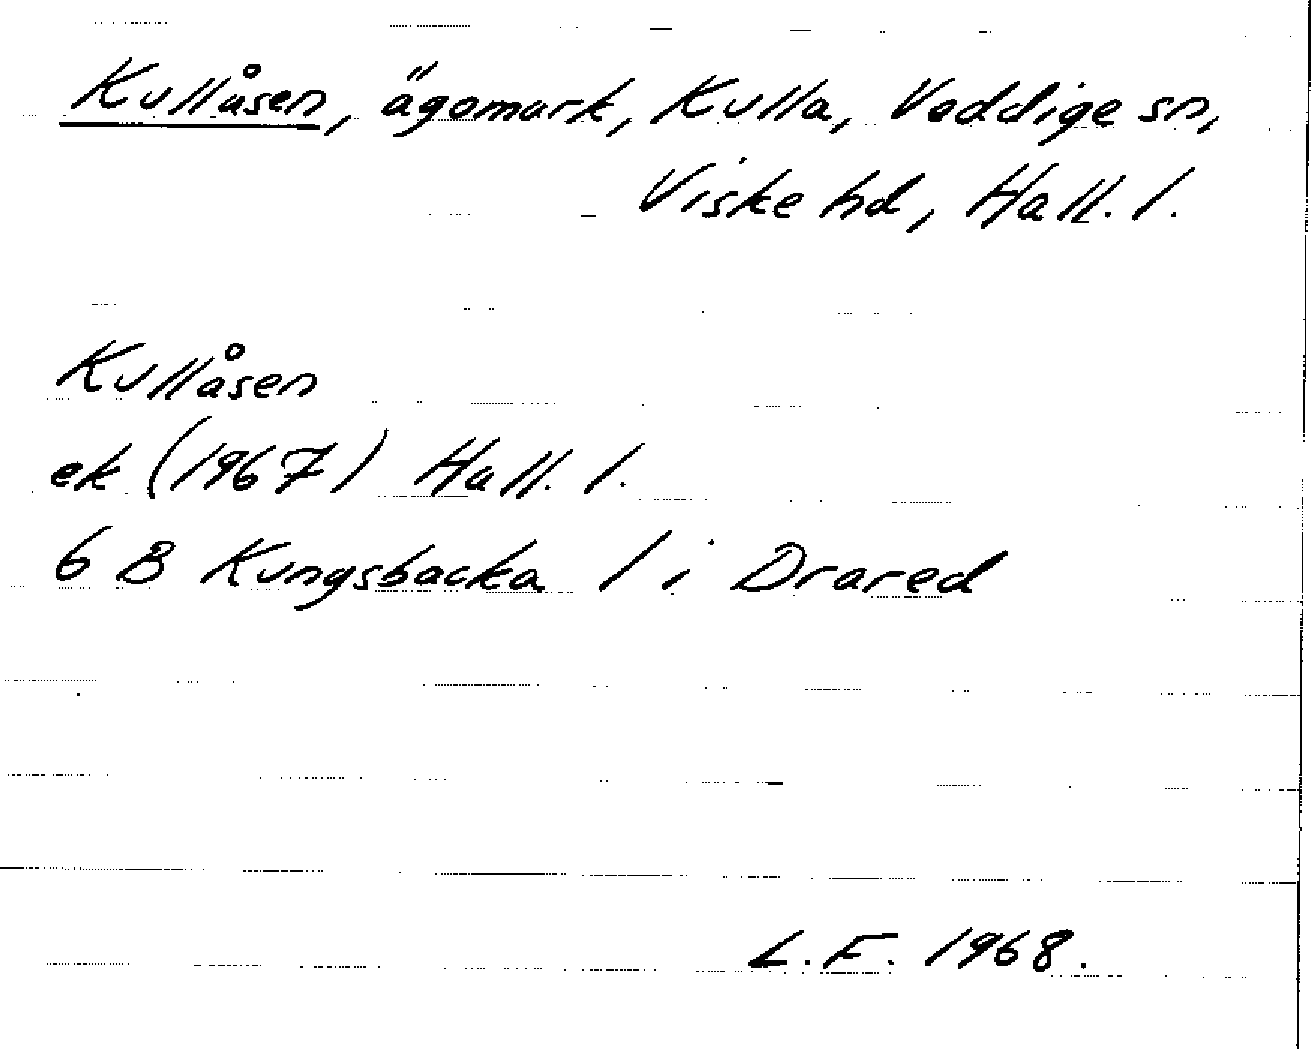 Kullåsen, ägomark, Kulla, Veddige sn,
Viske hd, Hall. l.
Kullåsen
ek (1967) Hall. l.
6 B Kungsbacka l i Drared
L.F. 1968.